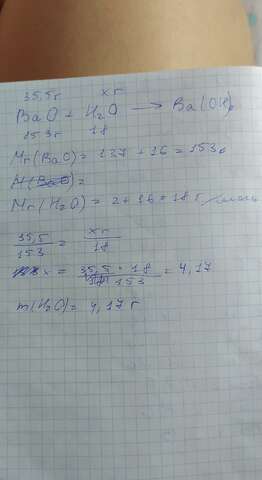 35,5г xг
BaO + H₂O → Ba(OH)₂
153г 18
Mr(BaO) = 137 + 16 = 153
Mr(H₂O) = 2 + 16 = 18 г/моль
35,5/153 = xг/18
x = 35,5 · 18 / 153 = 4,17
m(H₂O) = 4,17 г